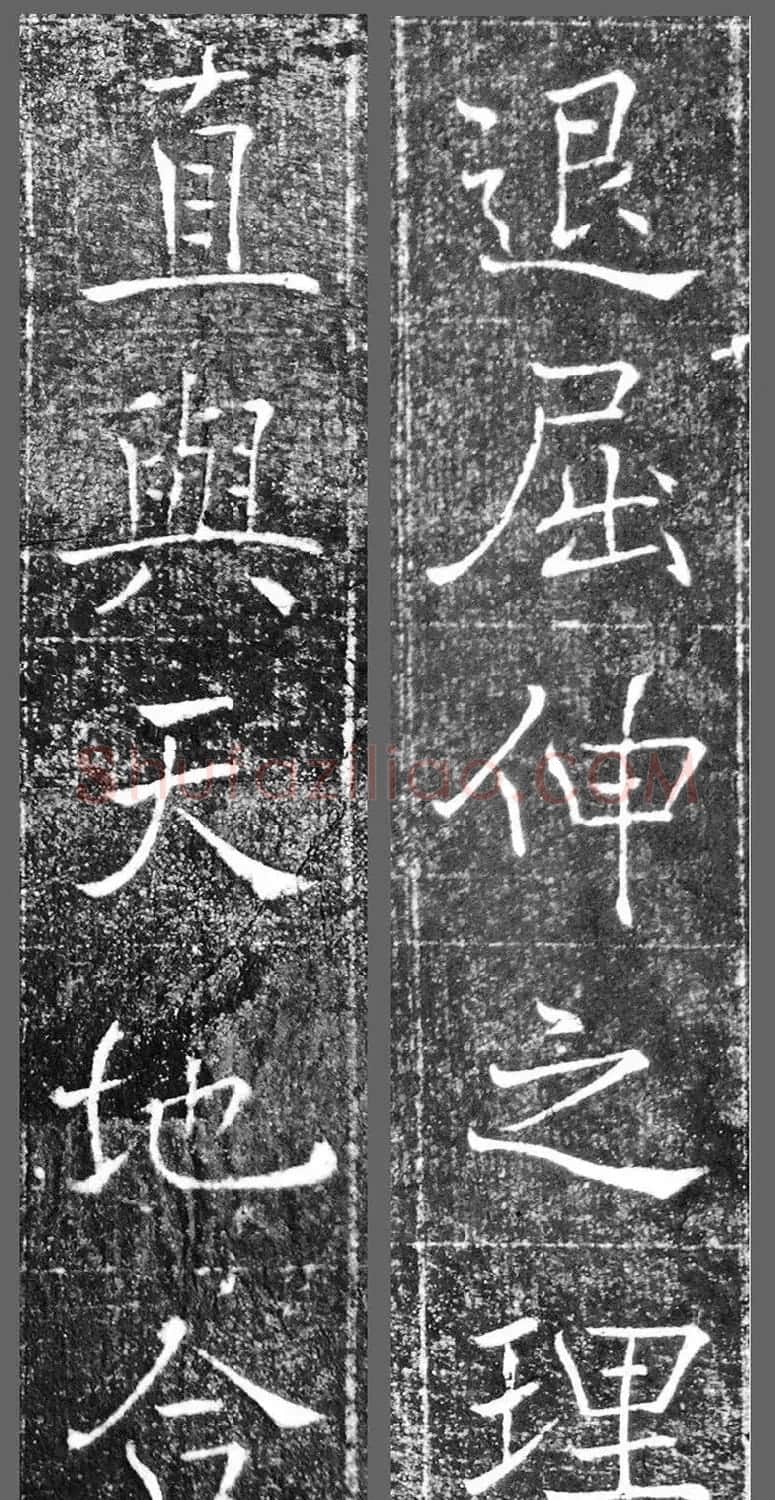 退屈伸之理
直與天地合
Shufaziliao.COM